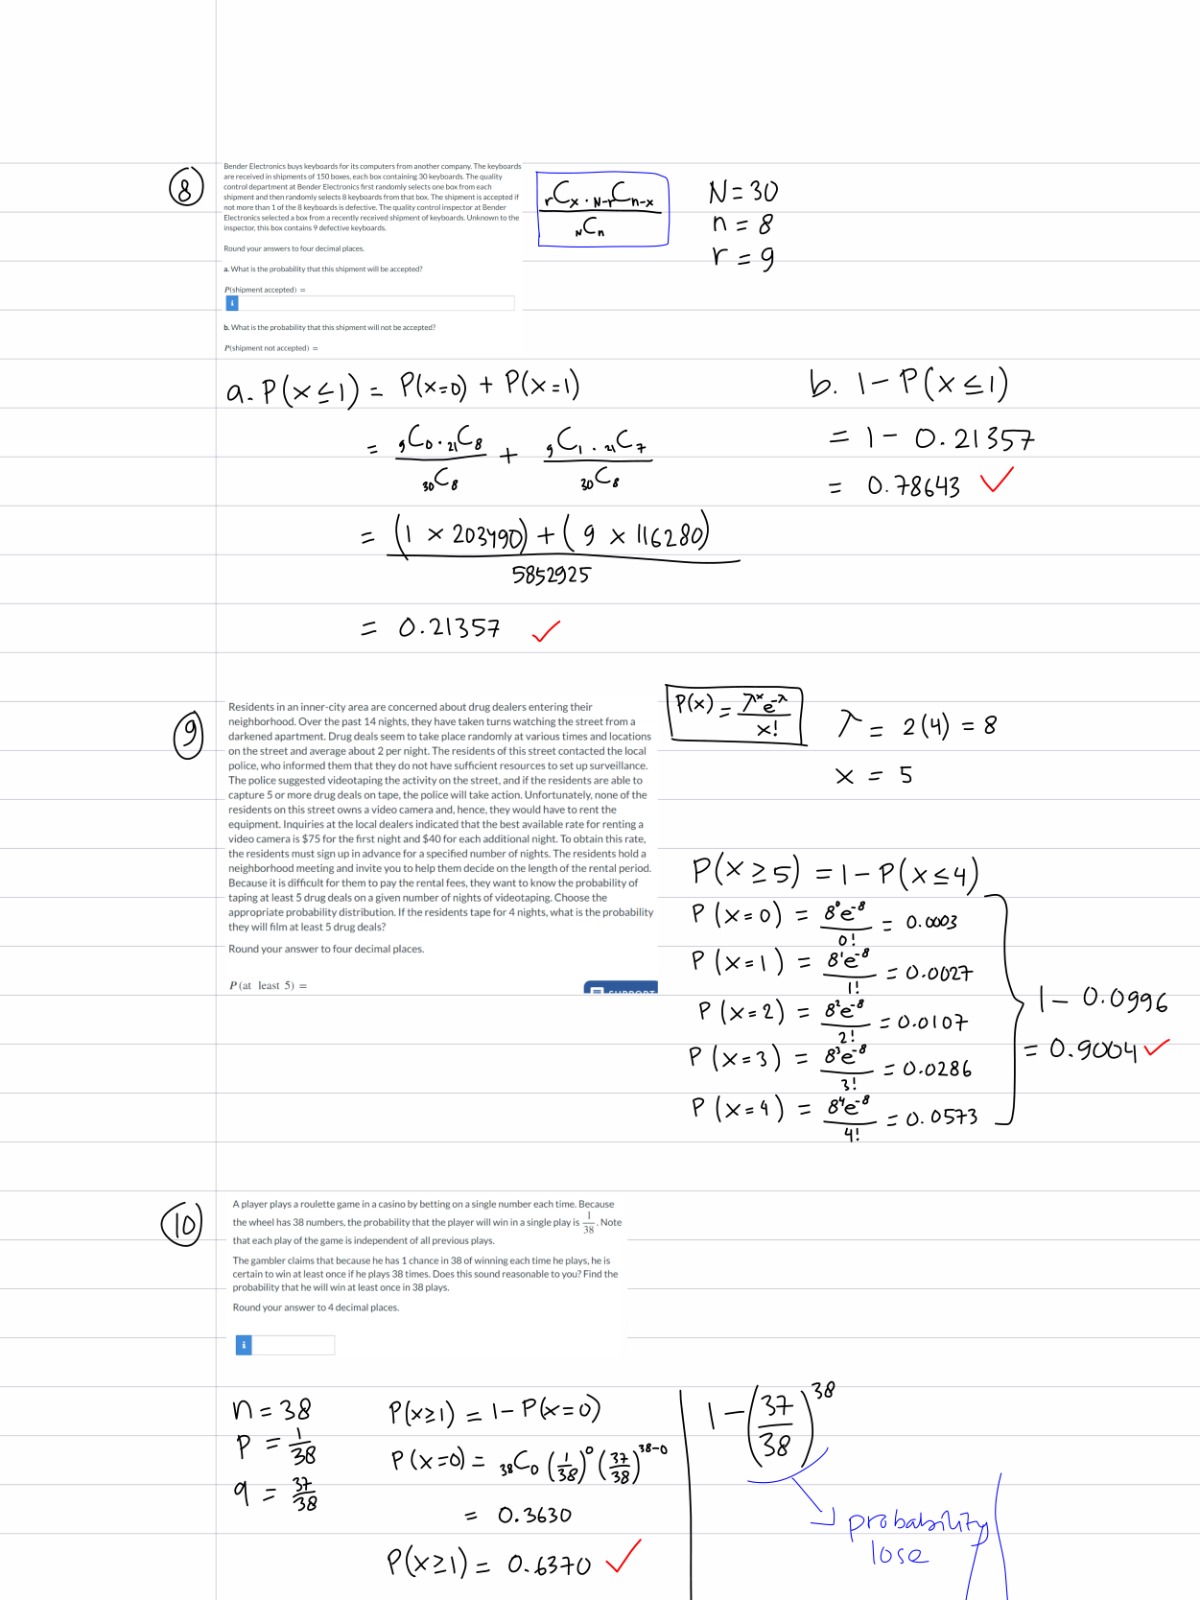 8
Bender Electronics buys keyboards for its computers from another company. The keyboards
are received in shipments of 150 boxes, each box containing 30 keyboards. The quality
control department at Bender Electronics first randomly selects one box from each
shipment and then randomly selects 8 keyboards from that box. The shipment is accepted if
not more than 1 of the 8 keyboards is defective. The quality control inspector at Bender
Electronics selected a box from a recently received shipment of keyboards. Unknown to the
inspector, this box contains 9 defective keyboards.
Round your answers to four decimal places.
a. What is the probability that this shipment will be accepted?
P(shipment accepted) =
i
b. What is the probability that this shipment will not be accepted?
P(shipment not accepted) =
rCx · N-rCn-x
NCn
N = 30
n = 8
r = 9
a. P(x ≤ 1) = P(x=0) + P(x=1)
= 9C0 · 21C8 / 30C8 + 9C1 · 21C7 / 30C8
= (1 × 203490) + (9 × 116280)
5852925
= 0.21357 ✓
b. 1 - P(x ≤ 1)
= 1 - 0.21357
= 0.78643 ✓
9
Residents in an inner-city area are concerned about drug dealers entering their
neighborhood. Over the past 14 nights, they have taken turns watching the street from a
darkened apartment. Drug deals seem to take place randomly at various times and locations
on the street and average about 2 per night. The residents of this street contacted the local
police, who informed them that they do not have sufficient resources to set up surveillance.
The police suggested videotaping the activity on the street, and if the residents are able to
capture 5 or more drug deals on tape, the police will take action. Unfortunately, none of the
residents on this street owns a video camera and, hence, they would have to rent the
equipment. Inquiries at the local dealers indicated that the best available rate for renting a
video camera is $75 for the first night and $40 for each additional night. To obtain this rate,
the residents must sign up in advance for a specified number of nights. The residents hold a
neighborhood meeting and invite you to help them decide on the length of the rental period.
Because it is difficult for them to pay the rental fees, they want to know the probability of
taping at least 5 drug deals on a given number of nights of videotaping. Choose the
appropriate probability distribution. If the residents tape for 4 nights, what is the probability
they will film at least 5 drug deals?
Round your answer to four decimal places.
P(at least 5) =
SUPPORT
P(x) = λ^x e^-λ / x!
λ = 2(4) = 8
x = 5
P(x ≥ 5) = 1 - P(x ≤ 4)
P(x=0) = 8^0 e^-8 / 0! = 0.0003
P(x=1) = 8^1 e^-8 / 1! = 0.0027
P(x=2) = 8^2 e^-8 / 2! = 0.0107
P(x=3) = 8^3 e^-8 / 3! = 0.0286
P(x=4) = 8^4 e^-8 / 4! = 0.0573
1 - 0.0996
= 0.9004 ✓
10
A player plays a roulette game in a casino by betting on a single number each time. Because
the wheel has 38 numbers, the probability that the player will win in a single play is 1/38. Note
that each play of the game is independent of all previous plays.
The gambler claims that because he has 1 chance in 38 of winning each time he plays, he is
certain to win at least once if he plays 38 times. Does this sound reasonable to you? Find the
probability that he will win at least once in 38 plays.
Round your answer to 4 decimal places.
i
n = 38
p = 1/38
q = 37/38
P(x≥1) = 1 - P(x=0)
P(x=0) = 38C0 (1/38)^0 (37/38)^38-0
= 0.3630
P(x≥1) = 0.6370 ✓
1 - (37/38)^38
probability
lose